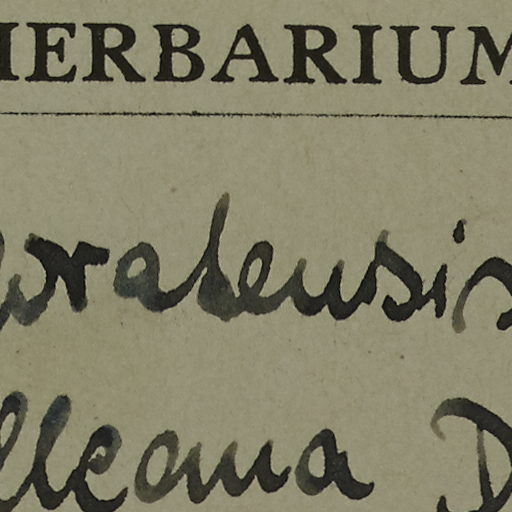 HERBARIUM
oratensis
lleana D